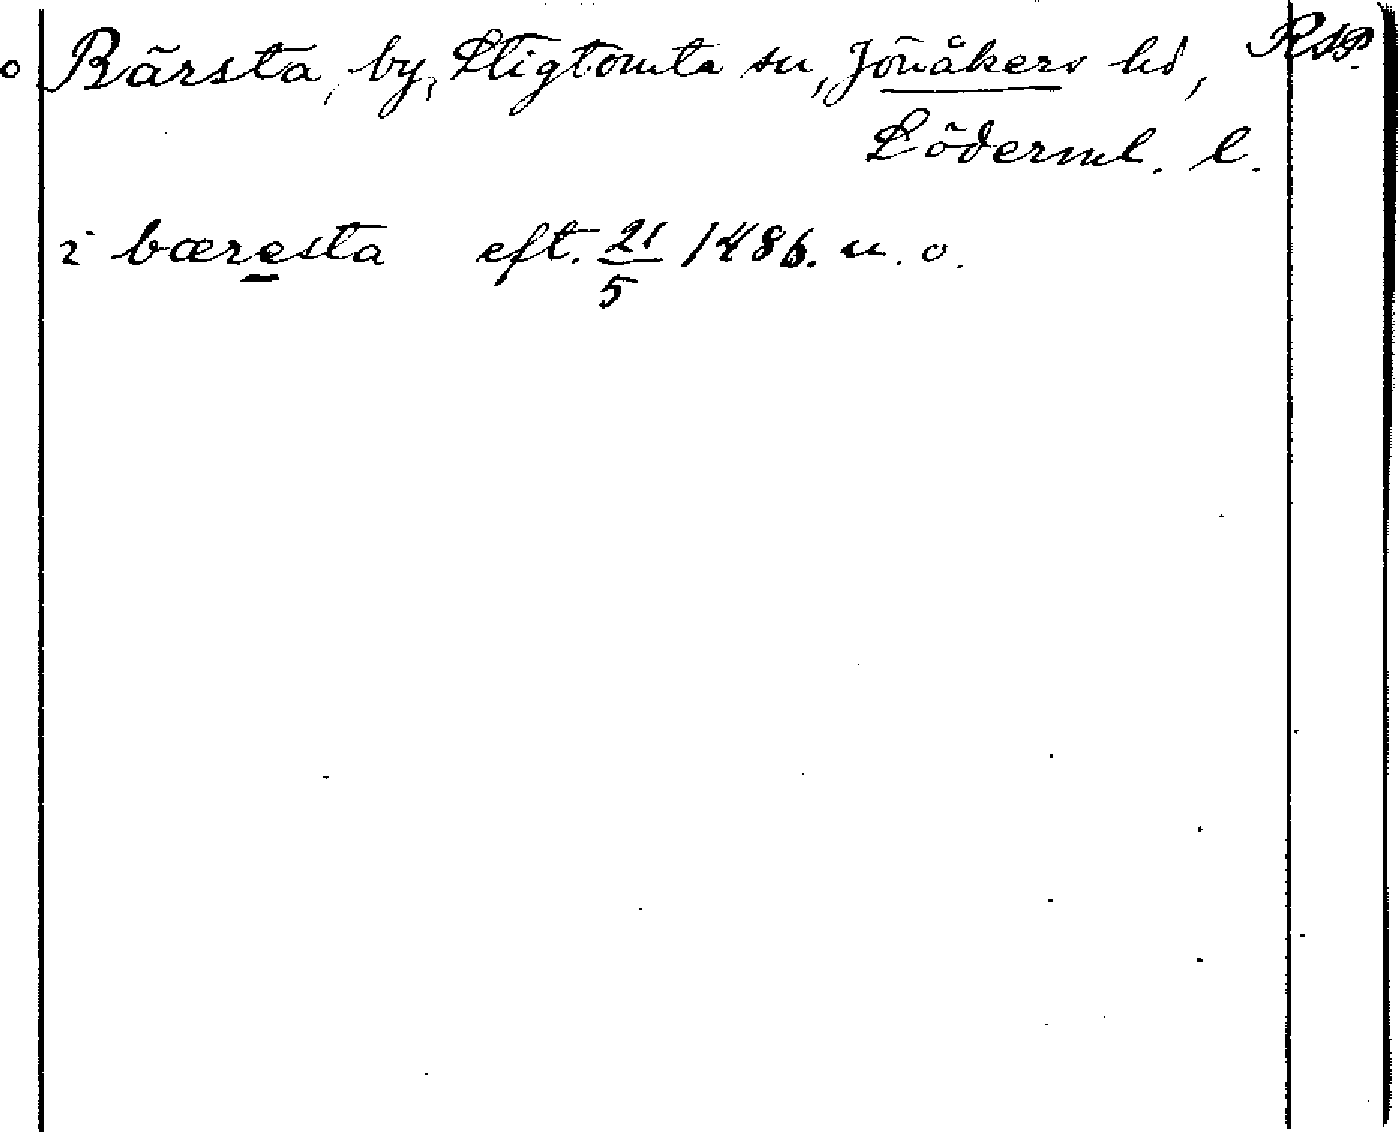 Bärsta, by, Stigtomta sn, Jönåkers hd, RAP.
Söderml. l.
i bæresta eft. 21/5 1486. u. o.